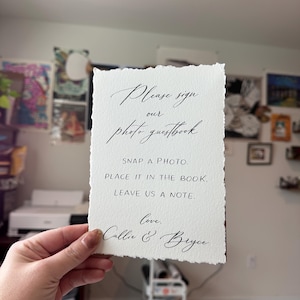 Please sign
our
photo guestbook
SNAP A PHOTO.
PLACE IT IN THE BOOK.
LEAVE US A NOTE.
love,
Callie & Bryce